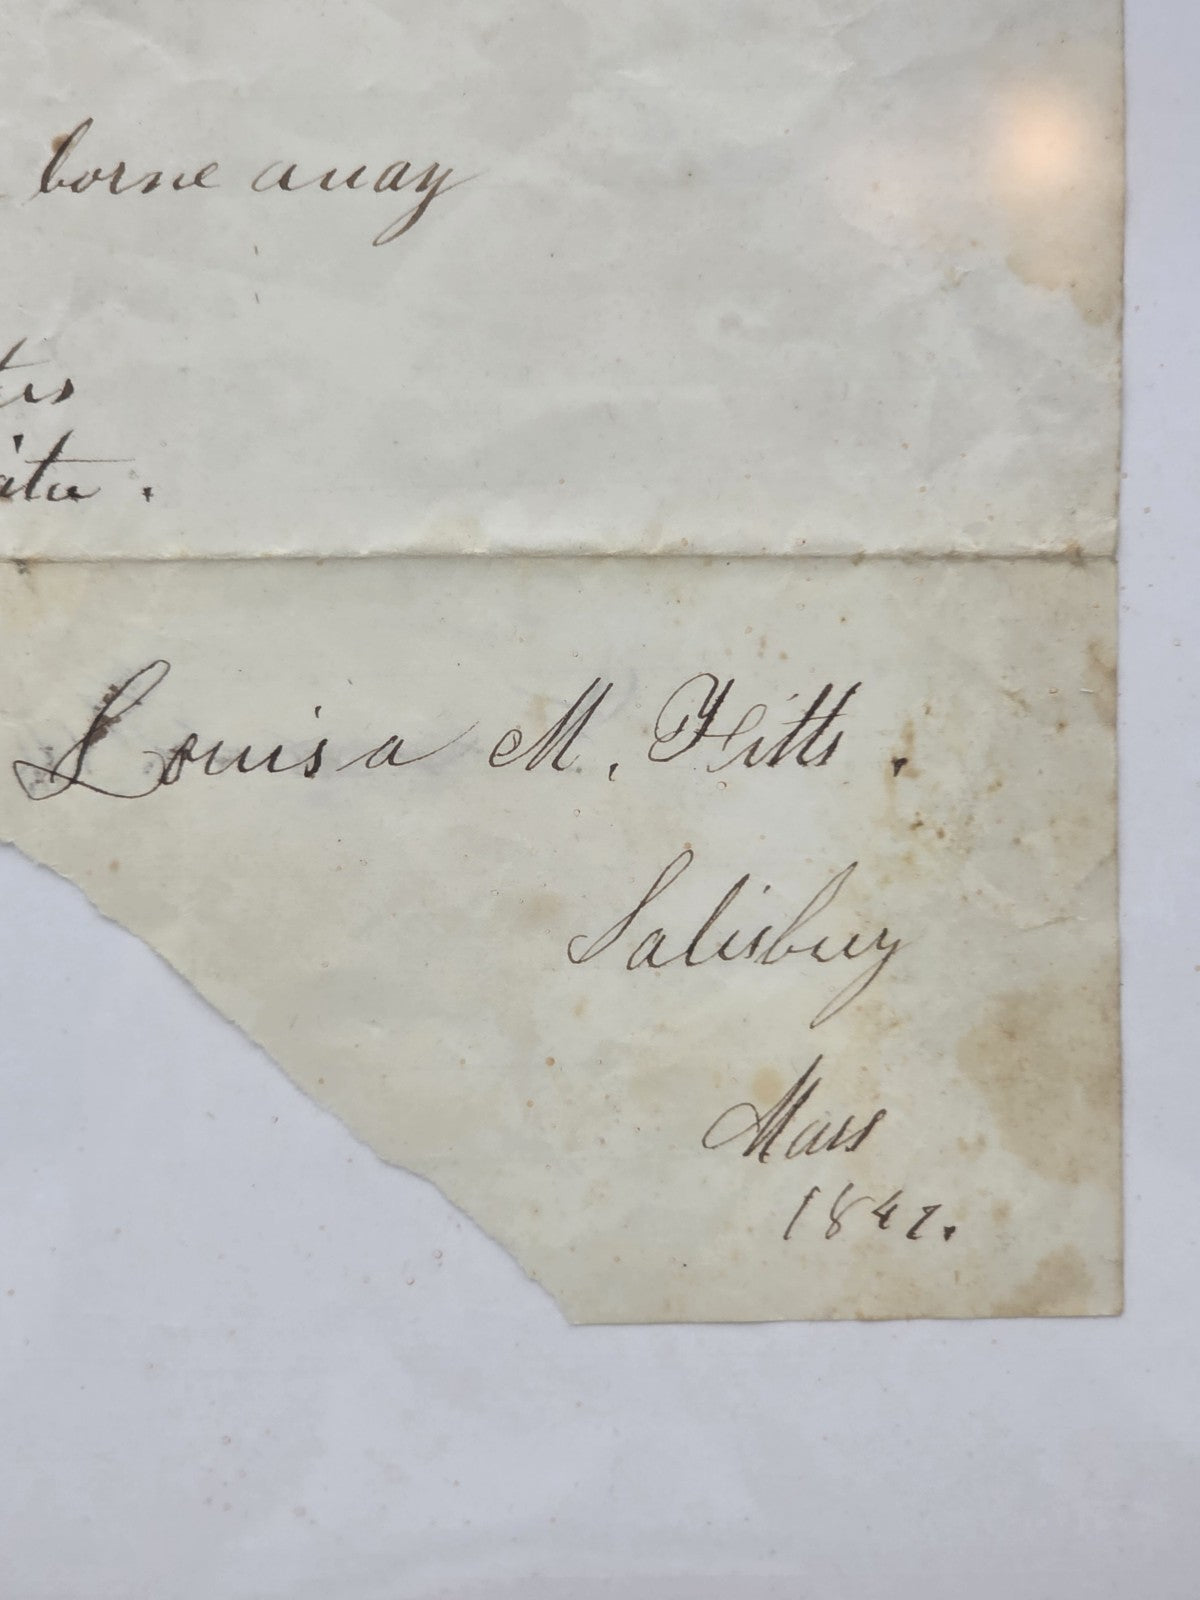 borne away
Louisa M. Fitts.
Salisbury
Mass
1842.